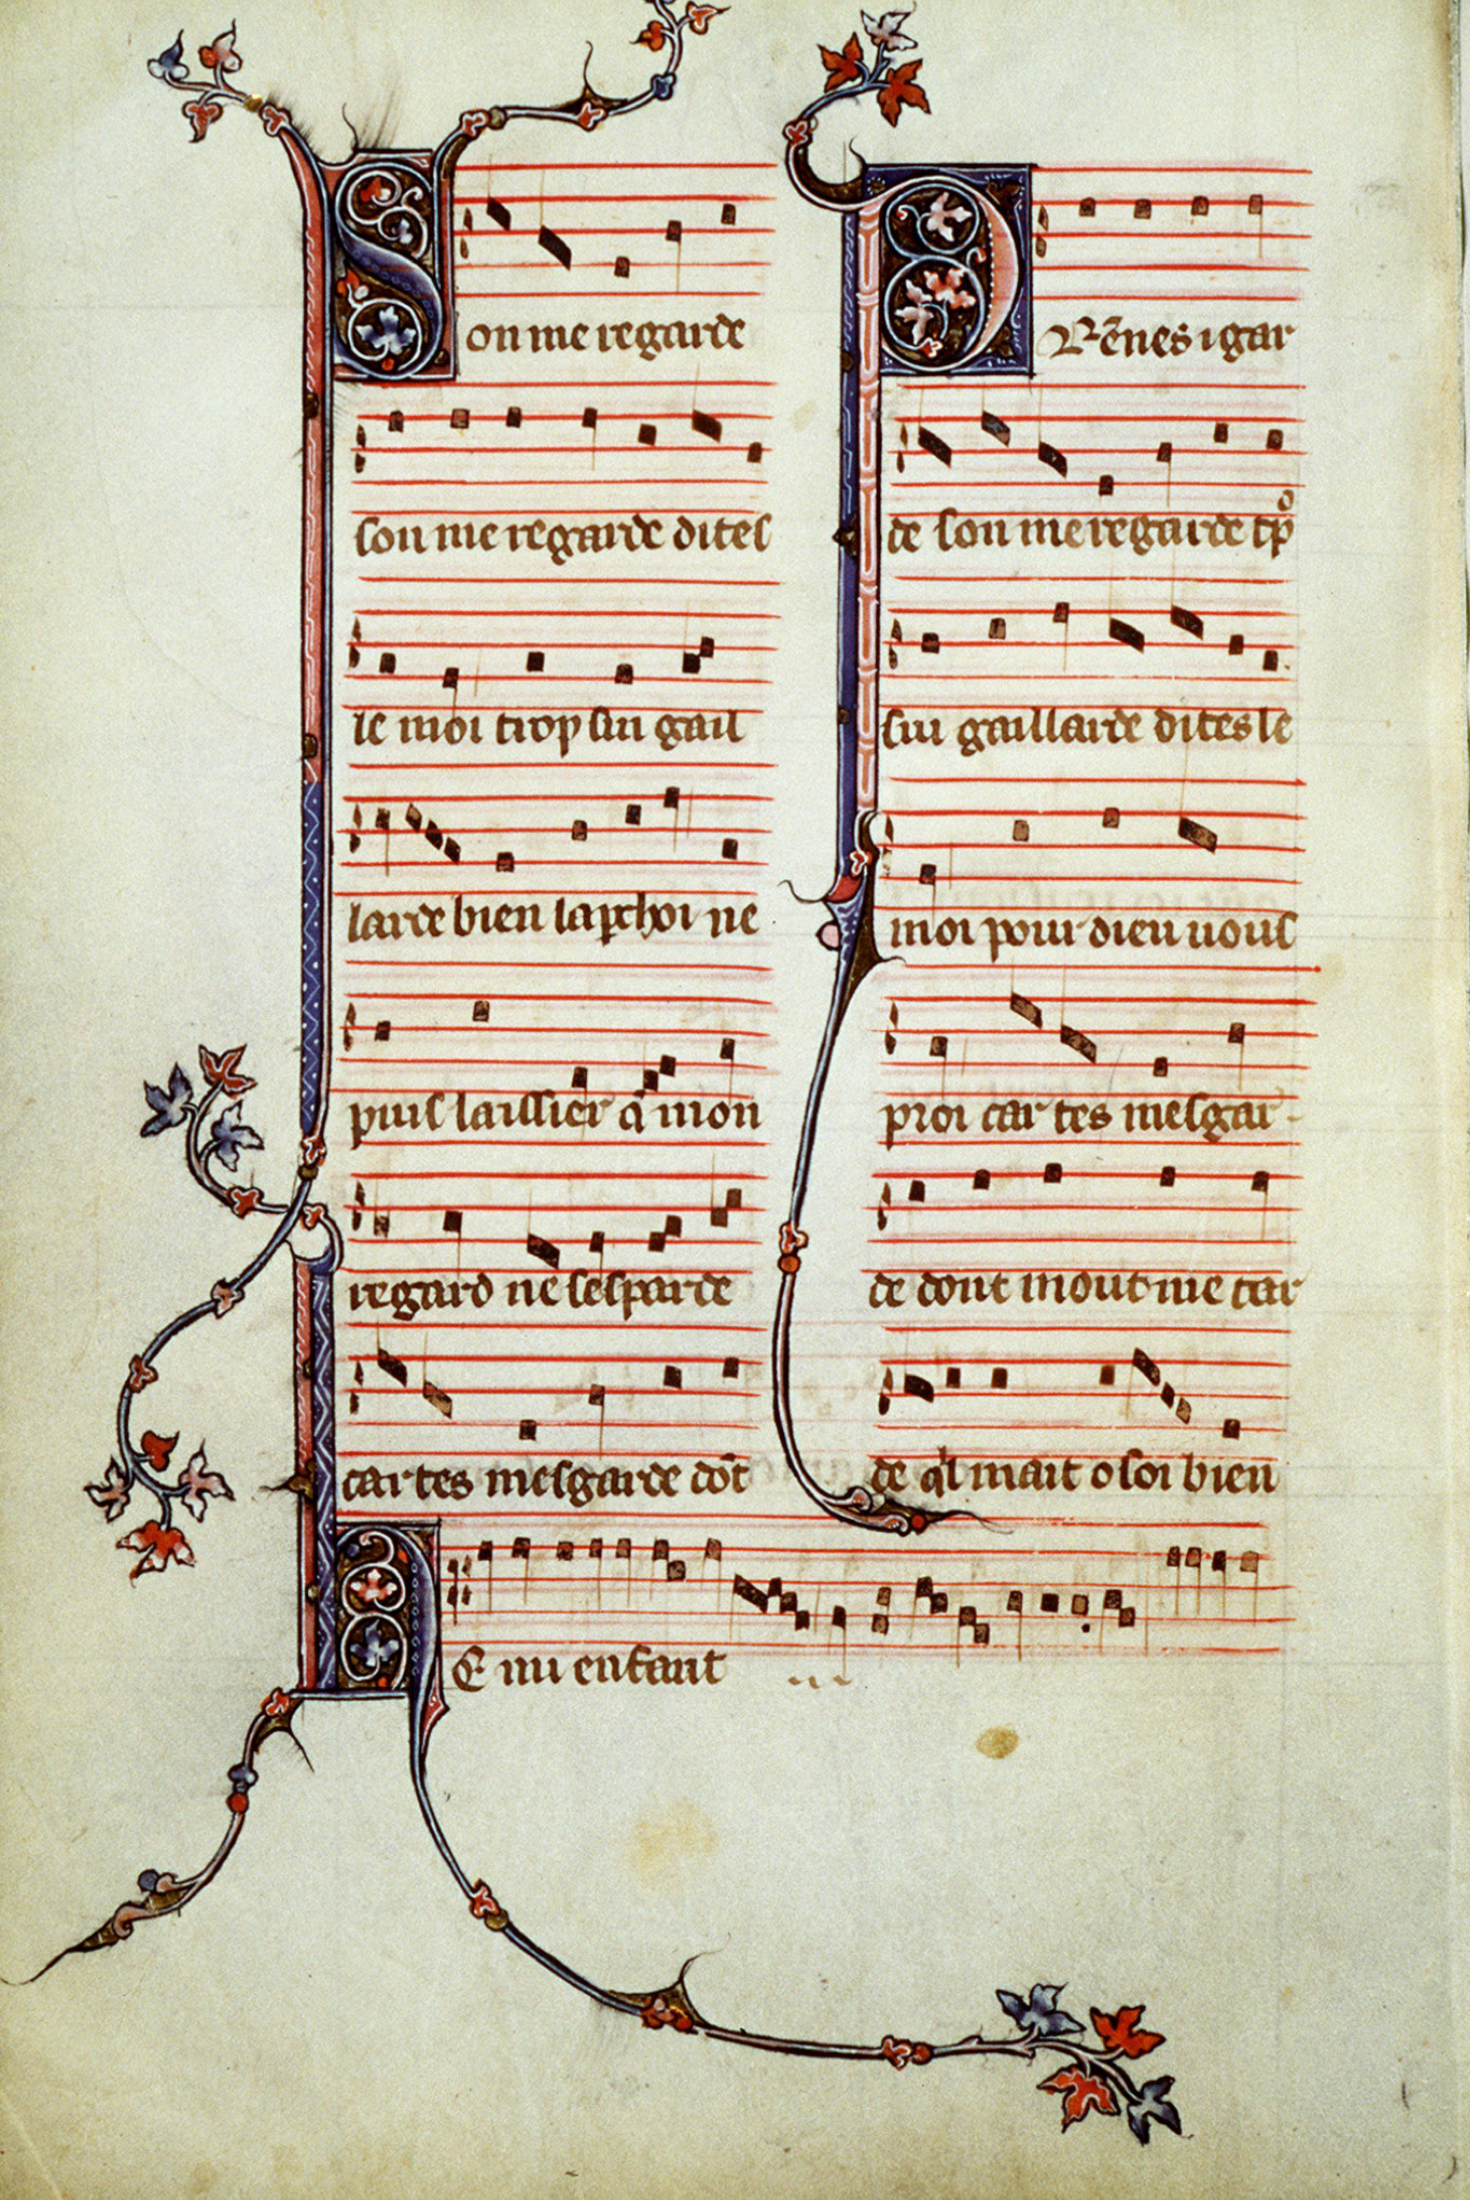 Son me regarde
son me regarde dites
le moi trop sui gail
larde bien laꝑchoi ne
puis laissier q̄ mon
regard ne sesparde
car tes mesgarde dōt
PRēnes i gar
de son me regarde tp̄o
sui gaillarde dites le
moi pour dieu uous
proi car tes mesgar-
de dont mout me tar
de ql mait o soi bien
HE mi enfant